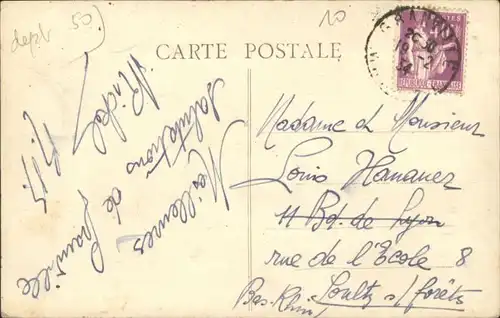 dept 50
10
CARTE POSTALE
GRANVILLE
POSTES
REPUBLIQUE FRANÇAISE
Meilleures
salutations de Granville
Madame et Monsieur
Louis Hanauer
11 Bd. de Lyon
rue de l'Ecole 8
Bas-Rhin Soultz s/forêts